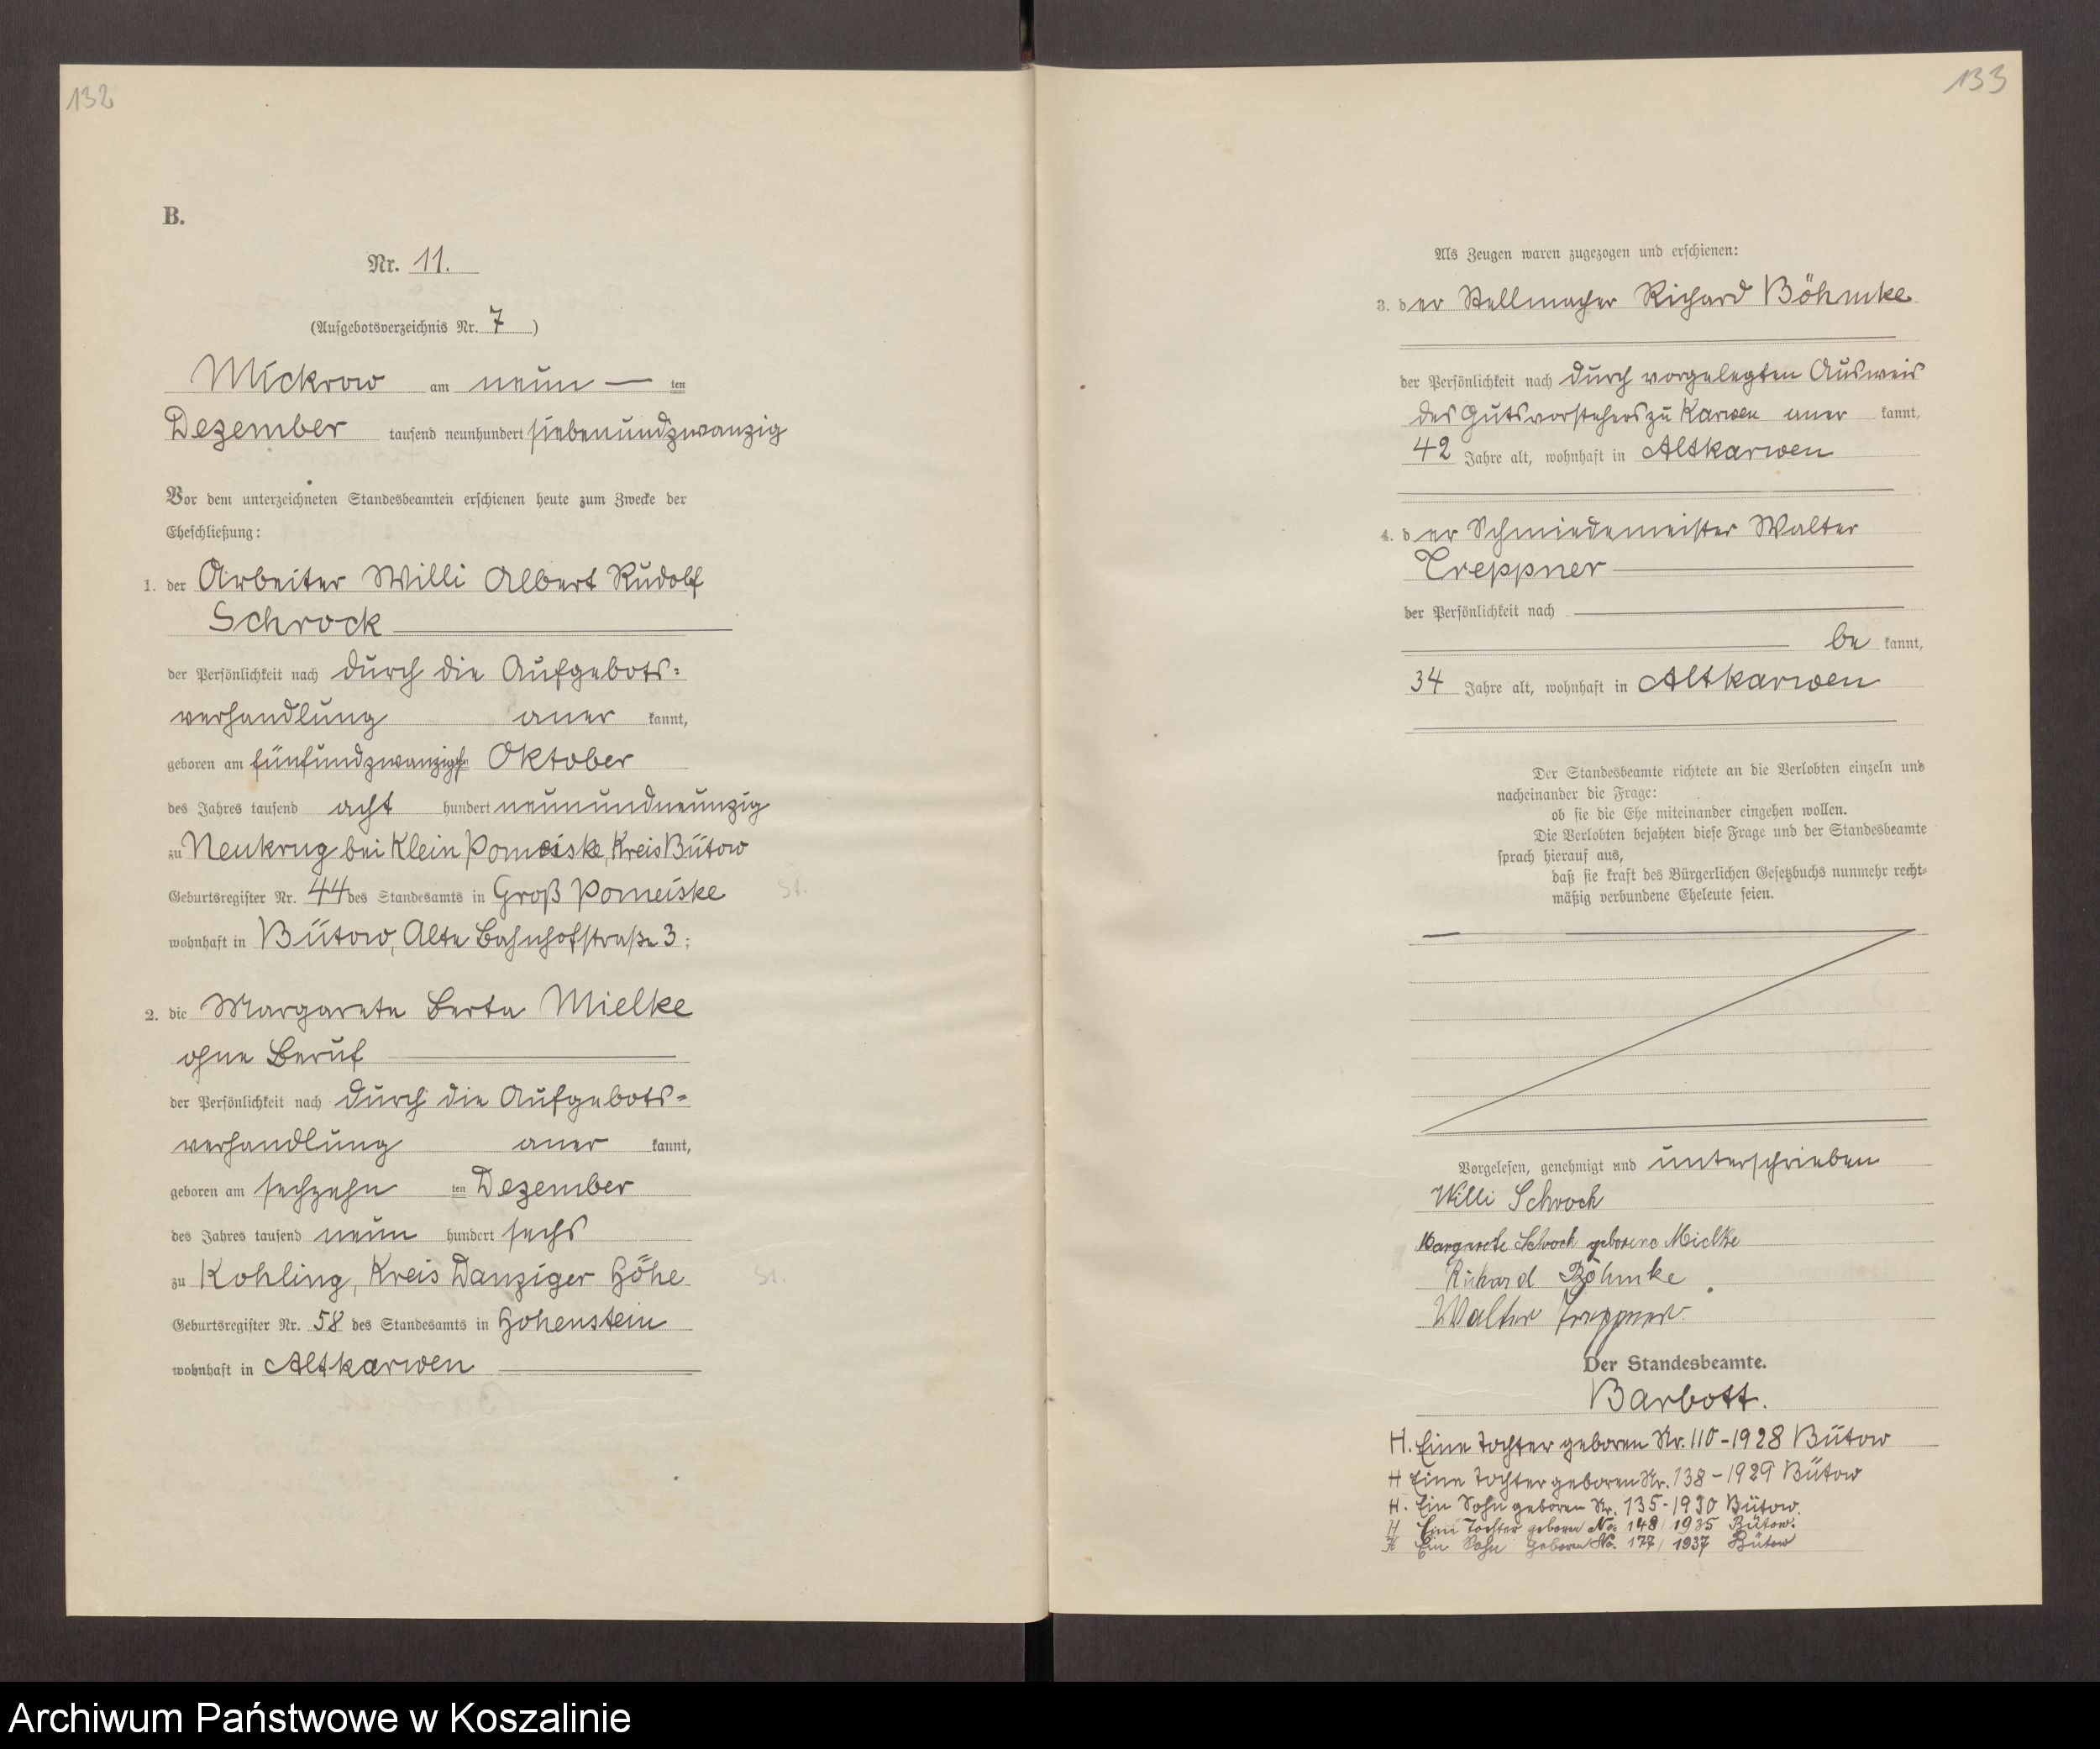 132
B.
Nr. 11.
(Aufgebotsverzeichnis Nr. 7)
Mickrow am neun — ten
Dezember tausend neunhundert siebenundzwanzig
Vor dem unterzeichneten Standesbeamten erschienen heute zum Zwecke der
Eheschließung:
1. der Arbeiter Willi Albert Rudolf
Schrock
der Persönlichkeit nach durch die Aufgebots-
verhandlung aner kannt,
geboren am fünfundzwanzigsten Oktober
des Jahres tausend acht hundert neunundneunzig
zu Neukrug bei Klein Pomeiske, Kreis Bütow
Geburtsregister Nr. 44 des Standesamts in Groß Pomeiske St.
wohnhaft in Bütow, Alte Bahnhofstraße 3;
2. die Margarete Berta Mielke
ohne Beruf
der Persönlichkeit nach durch die Aufgebots-
verhandlung aner kannt,
geboren am sechzehn ten Dezember
des Jahres tausend neun hundert sechs
zu Kohling, Kreis Danziger Höhe St.
Geburtsregister Nr. 58 des Standesamts in Hohenstein
wohnhaft in Altkarwen
133
Als Zeugen waren zugezogen und erschienen:
3. der Stellmacher Richard Böhmke
der Persönlichkeit nach durch vorgelegten Ausweis
des Gutsvorstehers zu Karwen aner kannt,
42 Jahre alt, wohnhaft in Altkarwen
4. der Schmiedemeister Walter
Treppner
der Persönlichkeit nach
be kannt,
34 Jahre alt, wohnhaft in Altkarwen
Der Standesbeamte richtete an die Verlobten einzeln und
nacheinander die Frage:
ob sie die Ehe miteinander eingehen wollen.
Die Verlobten bejahten diese Frage und der Standesbeamte
sprach hierauf aus,
daß sie kraft des Bürgerlichen Gesetzbuchs nunmehr recht-
mäßig verbundene Eheleute seien.
Vorgelesen, genehmigt und unterschrieben
Willi Schrock
Margarete Schrock geborene Mielke
Richard Böhmke
Walter Treppner.
Der Standesbeamte.
Barbott.
H. Eine Tochter geboren Nr. 110-1928 Bütow
H Eine Tochter geboren Nr. 138-1929 Bütow
H. Ein Sohn geboren Nr. 135-1930 Bütow.
H Eine Tochter geboren No. 148/1935 Bütow.
H Ein Sohn geboren No. 177/1937 Bütow
Archiwum Państwowe w Koszalinie